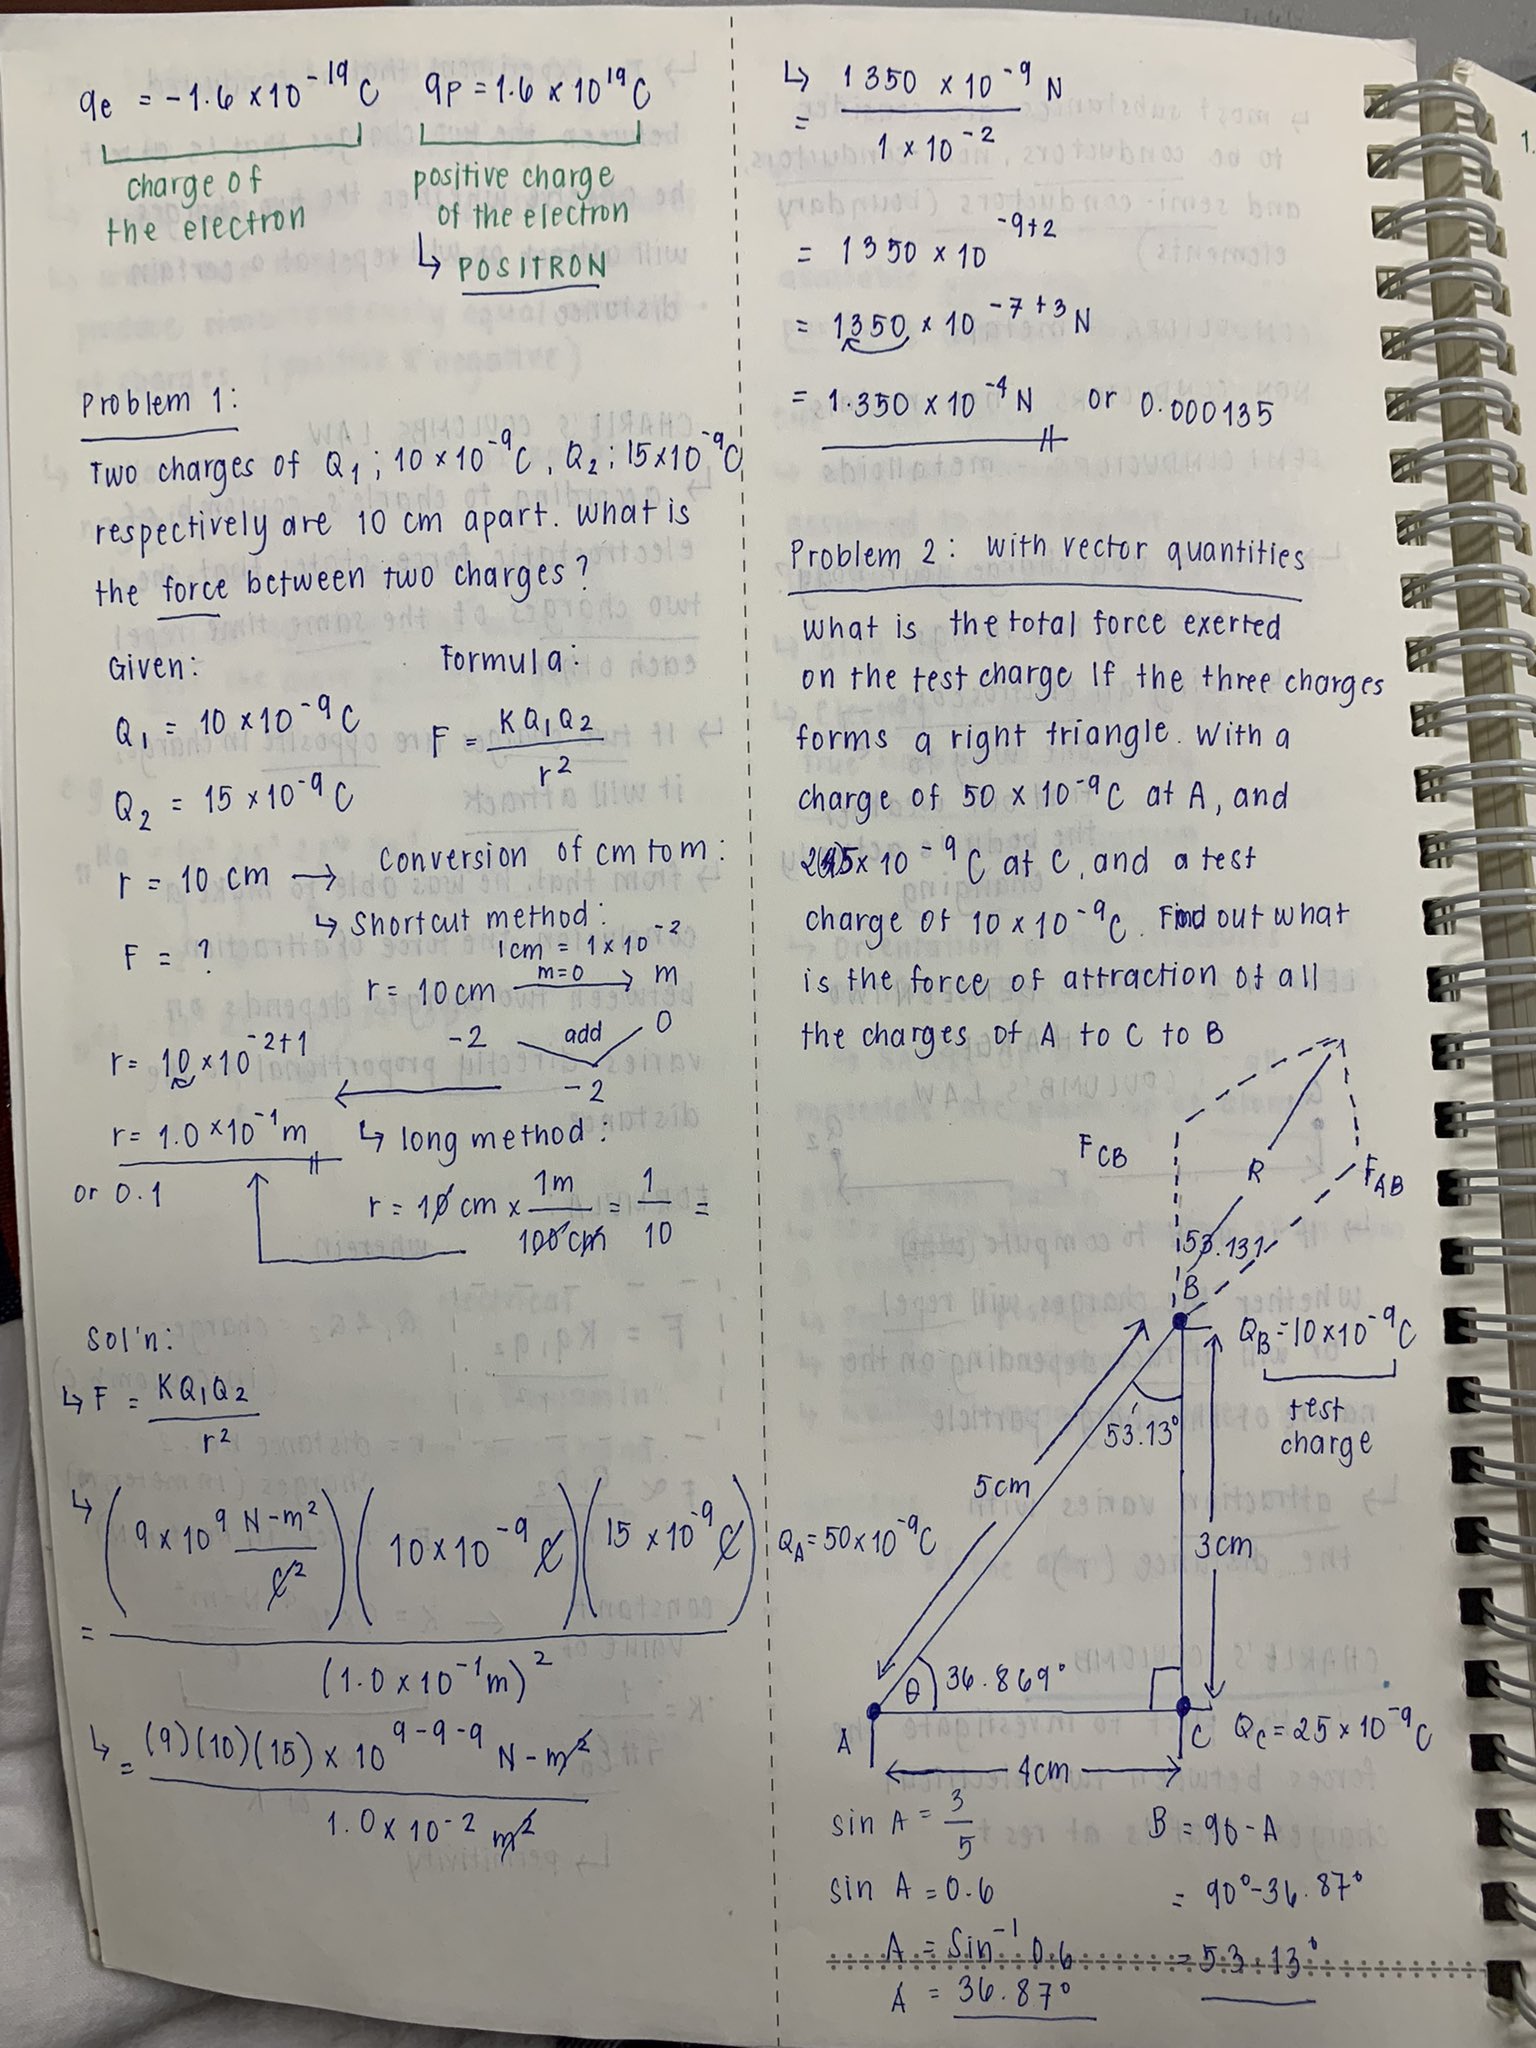 qe = -1.6 x 10^-19 C qp = 1.6 x 10^19 C
charge of
the electron
positive charge
of the electron
↳ POSITRON
Problem 1:
Two charges of Q₁ ; 10 x 10^-9 C, Q₂ ; 15 x 10^-9 C
respectively are 10 cm apart. What is
the force between two charges?
Given: Formula:
Q₁ = 10 x 10^-9 C F = KQ₁Q₂ / r²
Q₂ = 15 x 10^-9 C
r = 10 cm → Conversion of cm to m:
↳ Shortcut method:
1cm = 1 x 10^-2
F = ?
r = 10cm m=0 → m
-2 add 0
-2
r = 10 x 10^-2+1
r = 1.0 x 10^-1 m
or 0.1
↳ long method:
r = 10 cm x 1m / 100 cm = 1 / 10 =
Sol'n:
↳ F = KQ₁Q₂ / r²
↳ = (9 x 10^9 N-m² / C²) (10 x 10^-9 C) (15 x 10^-9 C)
(1.0 x 10^-1 m)²
↳ = (9)(10)(15) x 10^9-9-9 N-m²
1.0 x 10^-2 m²
↳ = 1350 x 10^-9 N
1 x 10^-2
= 1350 x 10^-9+2
= 1350 x 10^-7+3 N
= 1.350 x 10^-4 N or 0.000135
Problem 2: with vector quantities
What is the total force exerted
on the test charge if the three charges
forms a right triangle. With a
charge of 50 x 10^-9 C at A, and
25 x 10^-9 C at C, and a test
charge of 10 x 10^-9 C. Find out what
is the force of attraction of all
the charges of A to C to B
F CB
R
F AB
53.131
B
QB = 10 x 10^-9 C
test
charge
53.13°
5cm
QA = 50 x 10^-9 C
3cm
θ 36.869°
A
C QC = 25 x 10^-9 C
4cm
sin A = 3 / 5 B = 90 - A
sin A = 0.6 = 90° - 36.87°
A = Sin^-1 0.6 = 53.13°
A = 36.87°
1.